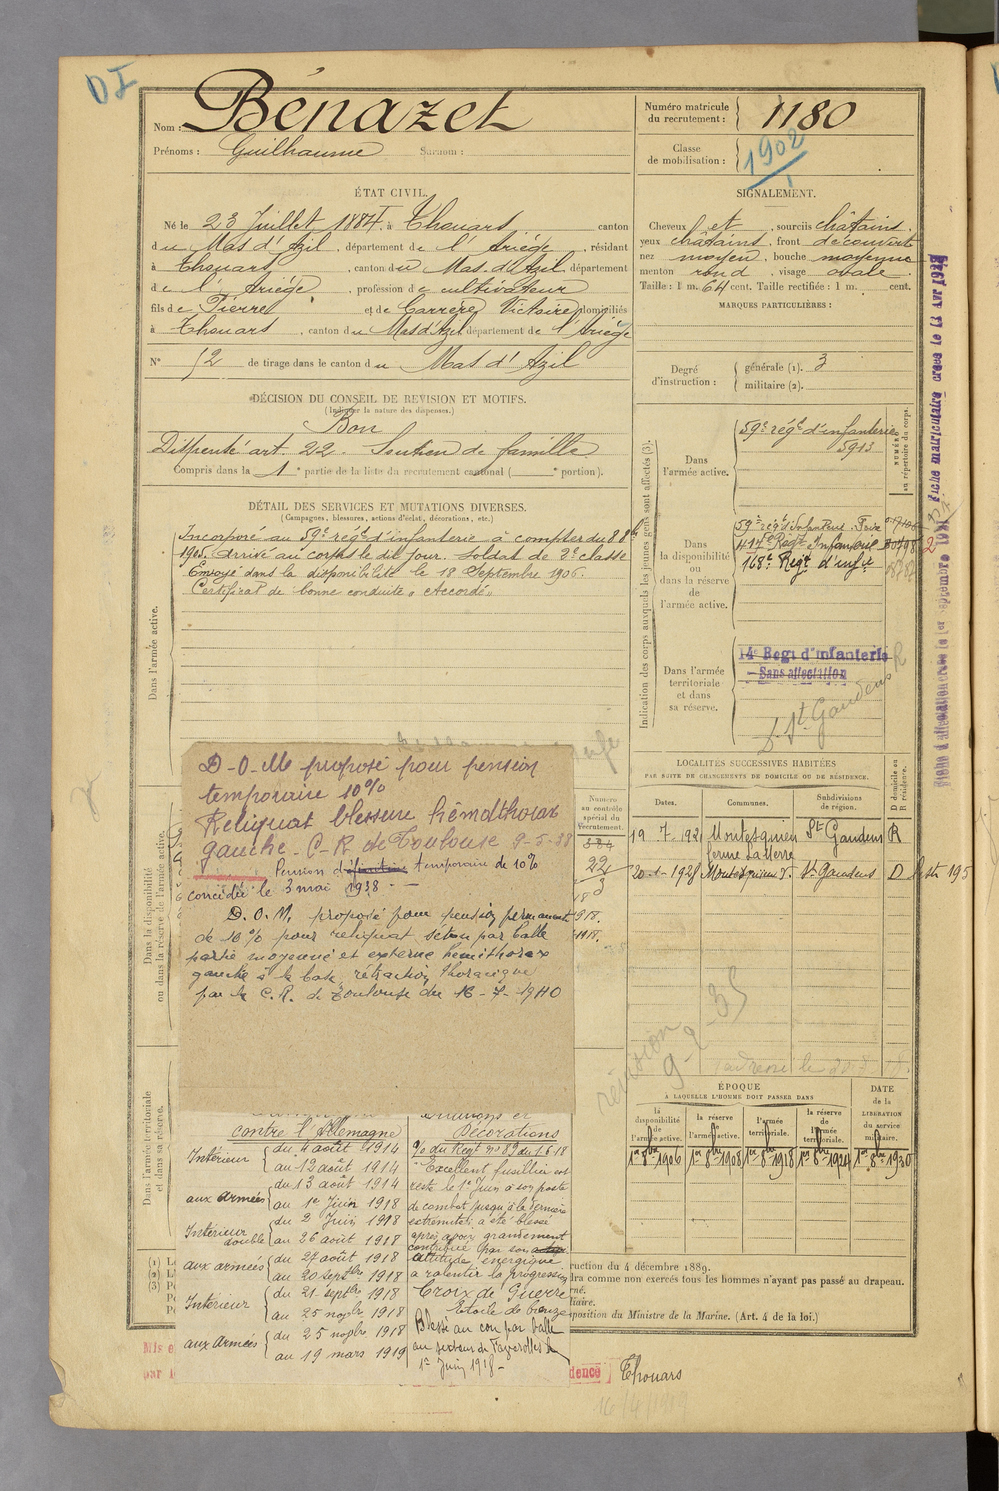 DI
Nom : Bénazet
Prénoms : Guilhaume Surnom :
Numéro matricule
du recrutement : 1180
Classe
de mobilisation : 1902
ÉTAT CIVIL.
Né le 23 Juillet 1884, à Thouars canton
du Mas d'Azil, département de l'Ariège, résidant
à Thouars, canton du Mas d'Azil, département
de l'Ariège, profession de cultivateur
fils de Pierre et de Carrère Victoire domiciliés
à Thouars, canton du Mas d'Azil département de l'Ariège
N° 52 de tirage dans le canton du Mas d'Azil
SIGNALEMENT.
Cheveux et, sourcils châtains.
yeux châtains, front découvert
nez moyen, bouche moyenne
menton rond, visage ovale.
Taille : 1 m. 64 cent. Taille rectifiée : 1 m. cent.
MARQUES PARTICULIÈRES :
Degré
d'instruction :
générale (1). 3
militaire (2).
DÉCISION DU CONSEIL DE REVISION ET MOTIFS.
(Indiquer la nature des dispenses.)
Bon
Dispensé art. 22. Soutien de famille
Compris dans la 1e partie de la liste du recrutement cantonal ( e portion).
DÉTAIL DES SERVICES ET MUTATIONS DIVERSES.
(Campagnes, blessures, actions d'éclat, décorations, etc.)
Incorporé au 59e rég. d'infanterie à compter du 8 8bre
1905. Arrivé au corps le dit jour. Soldat de 2e classe
Envoyé dans la disponibilité le 18 Septembre 1906.
Certificat de bonne conduite « Accordé »
Dans l'armée active.
Dans la disponibilité
ou dans la réserve de l'armée active.
Dans l'armée territoriale
et dans sa réserve.
Indication des corps auxquels les jeunes gens sont affectés (3).
Dans
l'armée active.
59e régt d'infanterie
5913
NUMÉRO
au répertoire du corps.
Dans
la disponibilité
ou
dans la réserve
de
l'armée active.
59e régt d'Infanterie. Foix
417e Regt Infanterie
168e Regt d'infie
Dans l'armée
territoriale
et dans
sa réserve.
14e Regt d'infanterie
Sans affectation
St Gaudens
R
LOCALITÉS SUCCESSIVES HABITÉES
PAR SUITE DE CHANGEMENTS DE DOMICILE OU DE RÉSIDENCE.
Dates. Communes. Subdivisions
de région.
D domicile ou
R résidence.
19. 7. 1921 Montesquieu St Gaudens R
20-1-1928 Montesquieu V. St Gaudens D
Numéro
au contrôle
spécial du
Recrutement.
22
3
D-O-M proposé pour pension
temporaire 10%
Reliquat blessure hémithorax
gauche. C-R de Toulouse 9-5-38
Pension définitive temporaire de 10%
concédée le 3 mai 1938. -
D. O. M. proposé pour pension permanent
de 10% pour reliquat séton par balle
partie moyenne et externe hémithorax
gauche à la base, rétraction thoracique
par la C.R. de Toulouse du 16-7-1940
1918.
1918.
révision
9-2-35
ÉPOQUE
A LAQUELLE L'HOMME DOIT PASSER DANS
la
disponibilité
de
l'armée active.
la réserve
de
l'armée active.
l'armée
territoriale.
la réserve
de
l'armée
territoriale.
DATE
de la
LIBÉRATION
du service
militaire.
1er 8bre 1906 1er 8bre 1908 1er 8bre 1918 1er 8bre 1924 1er 8bre 1930
contre l'Allemagne
Intérieur du 4 août 1914
au 12 août 1914
aux armées du 13 août 1914
au 1er Juin 1918
Intérieur double du 2 Juin 1918
au 26 août 1918
aux armées du 27 août 1918
au 20 septbre 1918
Intérieur du 21 septbre 1918
au 25 novbre 1918
aux Armées du 25 novbre 1918
au 19 mars 1919
Décorations
O/ du Régt n° 89 du 1.6.18
"Excellent fusillier est
resté le 1er Juin à son poste
de combat jusqu'à la dernière
extrémité; a été blessé
après avoir grandement
contribué par son
attitude énergique
à ralentir la progression
Croix de Guerre
Etoile de bronze
Blessé au cou par balle
au secteur de Faverolles le
1er Juin 1918 -
(1)
(2)
(3)
ruction du 4 décembre 1889.
dra comme non exercés tous les hommes n'ayant pas passé au drapeau.
position du Ministre de la Marine. (Art. 4 de la loi.)
Mis e
par
dence Thouars